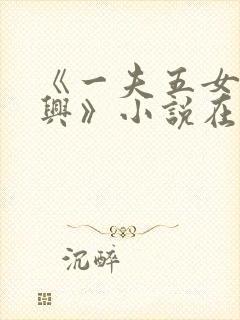 《一夫五女
興》小說在
沉醉